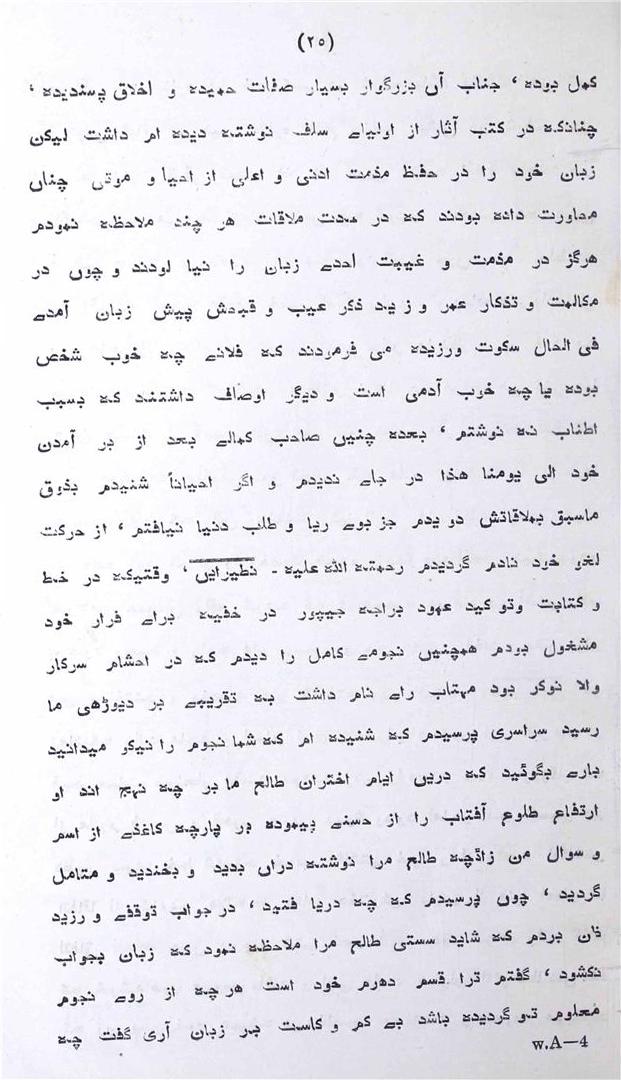 (۲۵)
کمل بوده ، جناب آن بزرگوار بسیار صفات حمیده و اخلاق پسندیده ،
چنانکه در کتب آثار از اولیاے سلف نوشته دیده ام داشت لیکن
زبان خود را در حفظ مذمت ادنی و اعلی از احیا و موتی چناں
محاورت داده بودند که در مدت ملاقات هر چند ملاحظه نمودم
هرگز در مذمت و غیبت احدے زبان را نیا لودند و چوں در
مکالمت و تذکار عمر و زید ذکر عیب و قبحش پیش زبان آمدے
فی الحال سکوت ورزیده می فرمودند که فلانے چه خوب شخص
بوده یا چه خوب آدمی است و دیگر اوصاف داشتند که بسبب
اطناب نه نوشتم ، بعده چنیں صاحب کمالے بعد از بر آمدن
خود الی یومنا هذا در جاے ندیدم و اگر احیاناً شنیدم بذوق
ماسبق بملاقاتش دویدم جز بوے ریا و طلب دنیا نیافتم ، از حرکت
لغو خود نادم گردیدم رحمته الله علیه - نظیرایں ، وقتیکه در خط
و کتابت وتوکید عهود براجه جیپور در خفیه براے فرار خود
مشغول بودم همچنیں نجومے کامل را دیدم که در احشام سرکار
والا نوکر بود مهتاب راے نام داشت به تقریبے بر دیوڑهی ما
رسید سراسری پرسیدم که شنیده ام که شما نجوم را نیکو میدانید
بارے بگوئید که دریں ایام اختران طالع ما بر چه نهج اند او
ارتفاع طلوع آفتاب را از حسنے پیموده بر پارچه کاغذے از اسم
و سوال من زائچه طالع مرا نوشته دراں بدید و بخندید و متامل
گردید ، چوں پرسیدم که چه دریا فتید ، در جواب توقفے و رزید
ظن بردم که شاید سستی طالع مرا ملاحظه نمود که زبان بجواب
نکشود ، گفتم ترا قسم دهرم خود است هر چه از روے نجوم
معلوم تو گردیده باشد بے کم و کاست بر زبان آری گفت چه
w.A—4